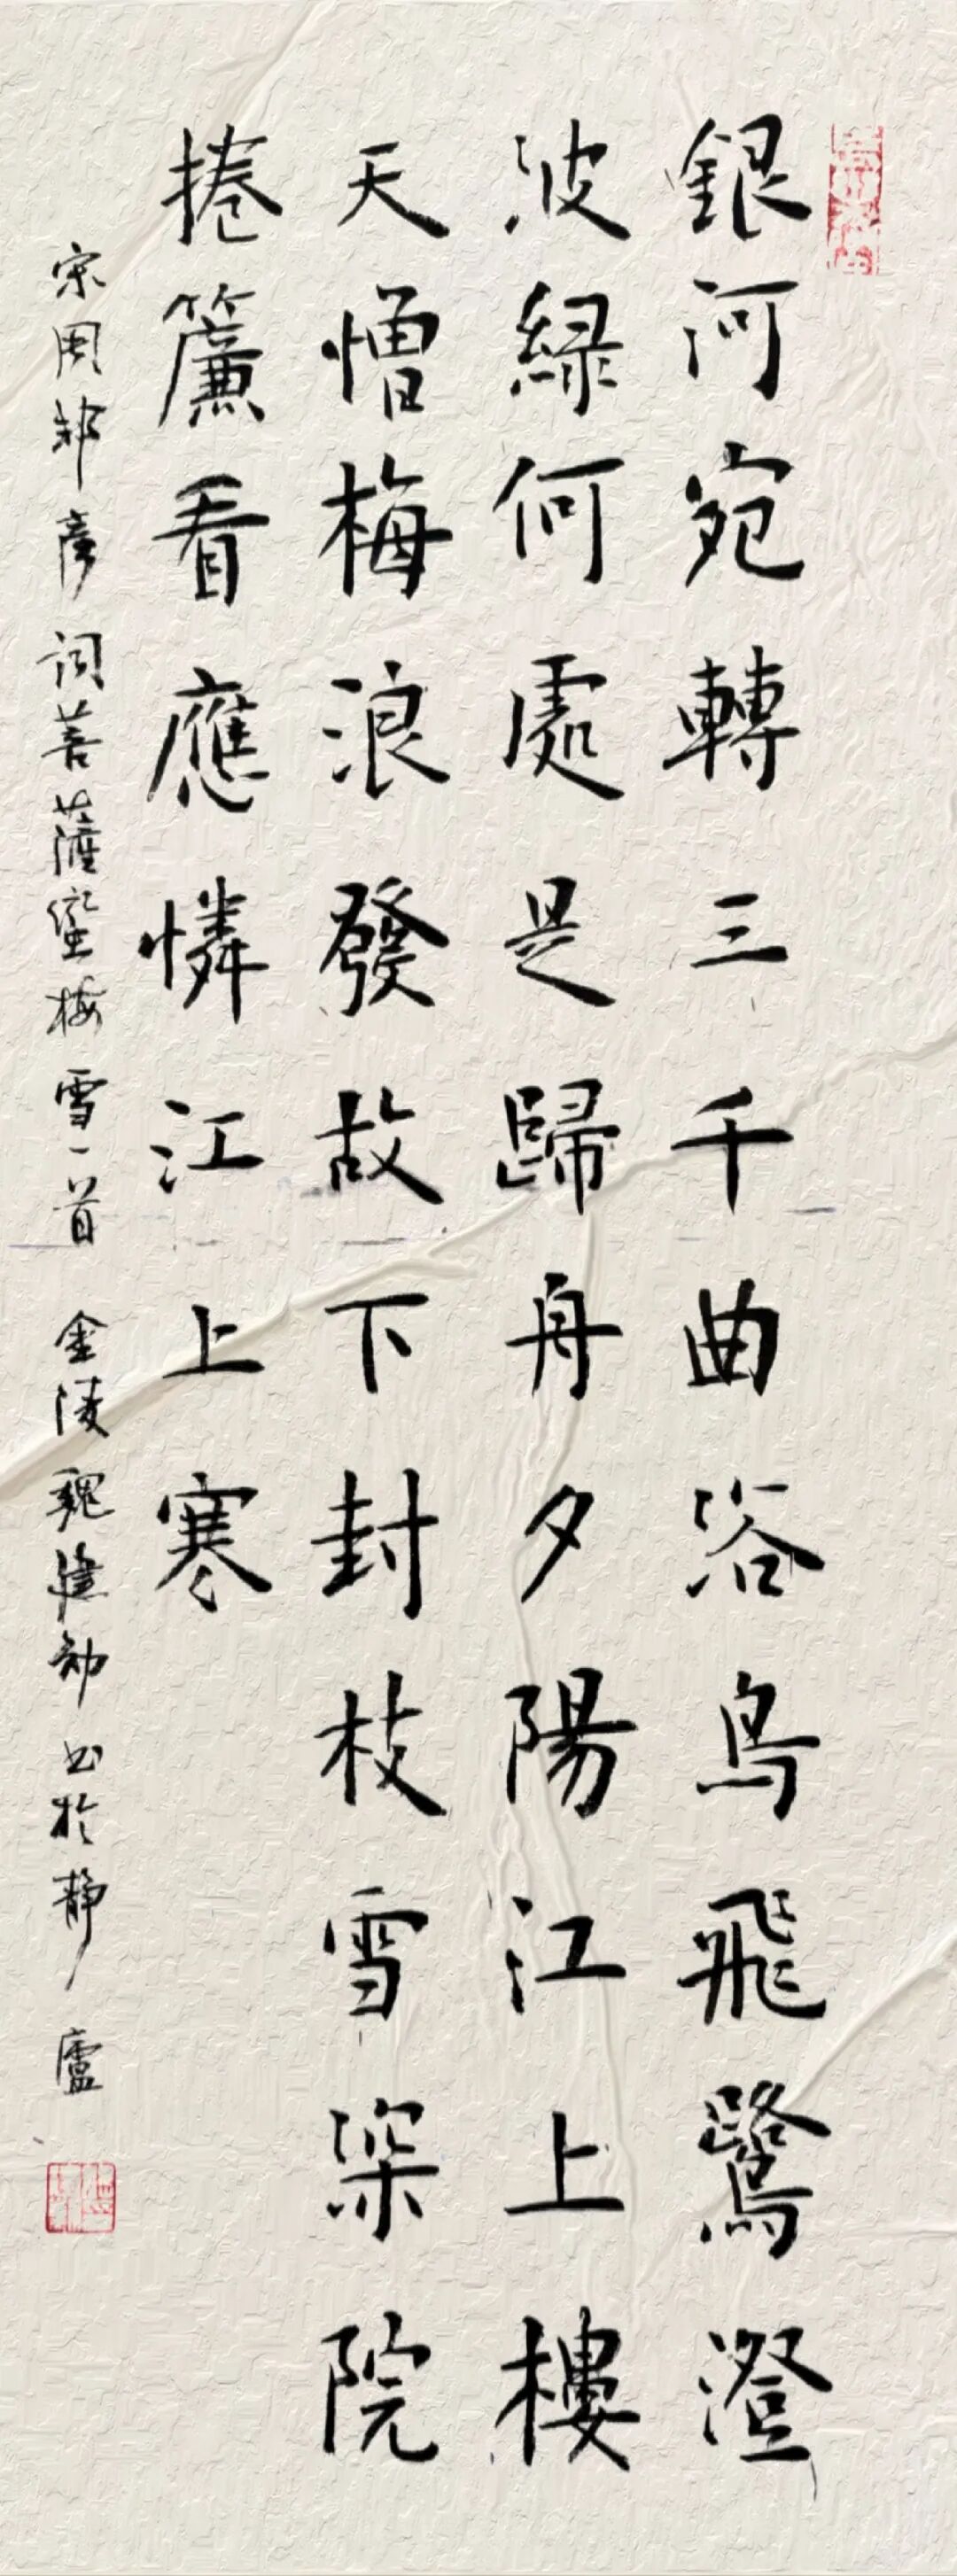 銀河宛轉三千曲浴鳥飛鷺澄
波綠何處是歸舟夕陽江上樓
天憎梅浪發故下封枝雪深院
捲簾看應憐江上寒
宋周邦彥詞菩薩蠻梅雪一首 金陵魏建勁书於静廬